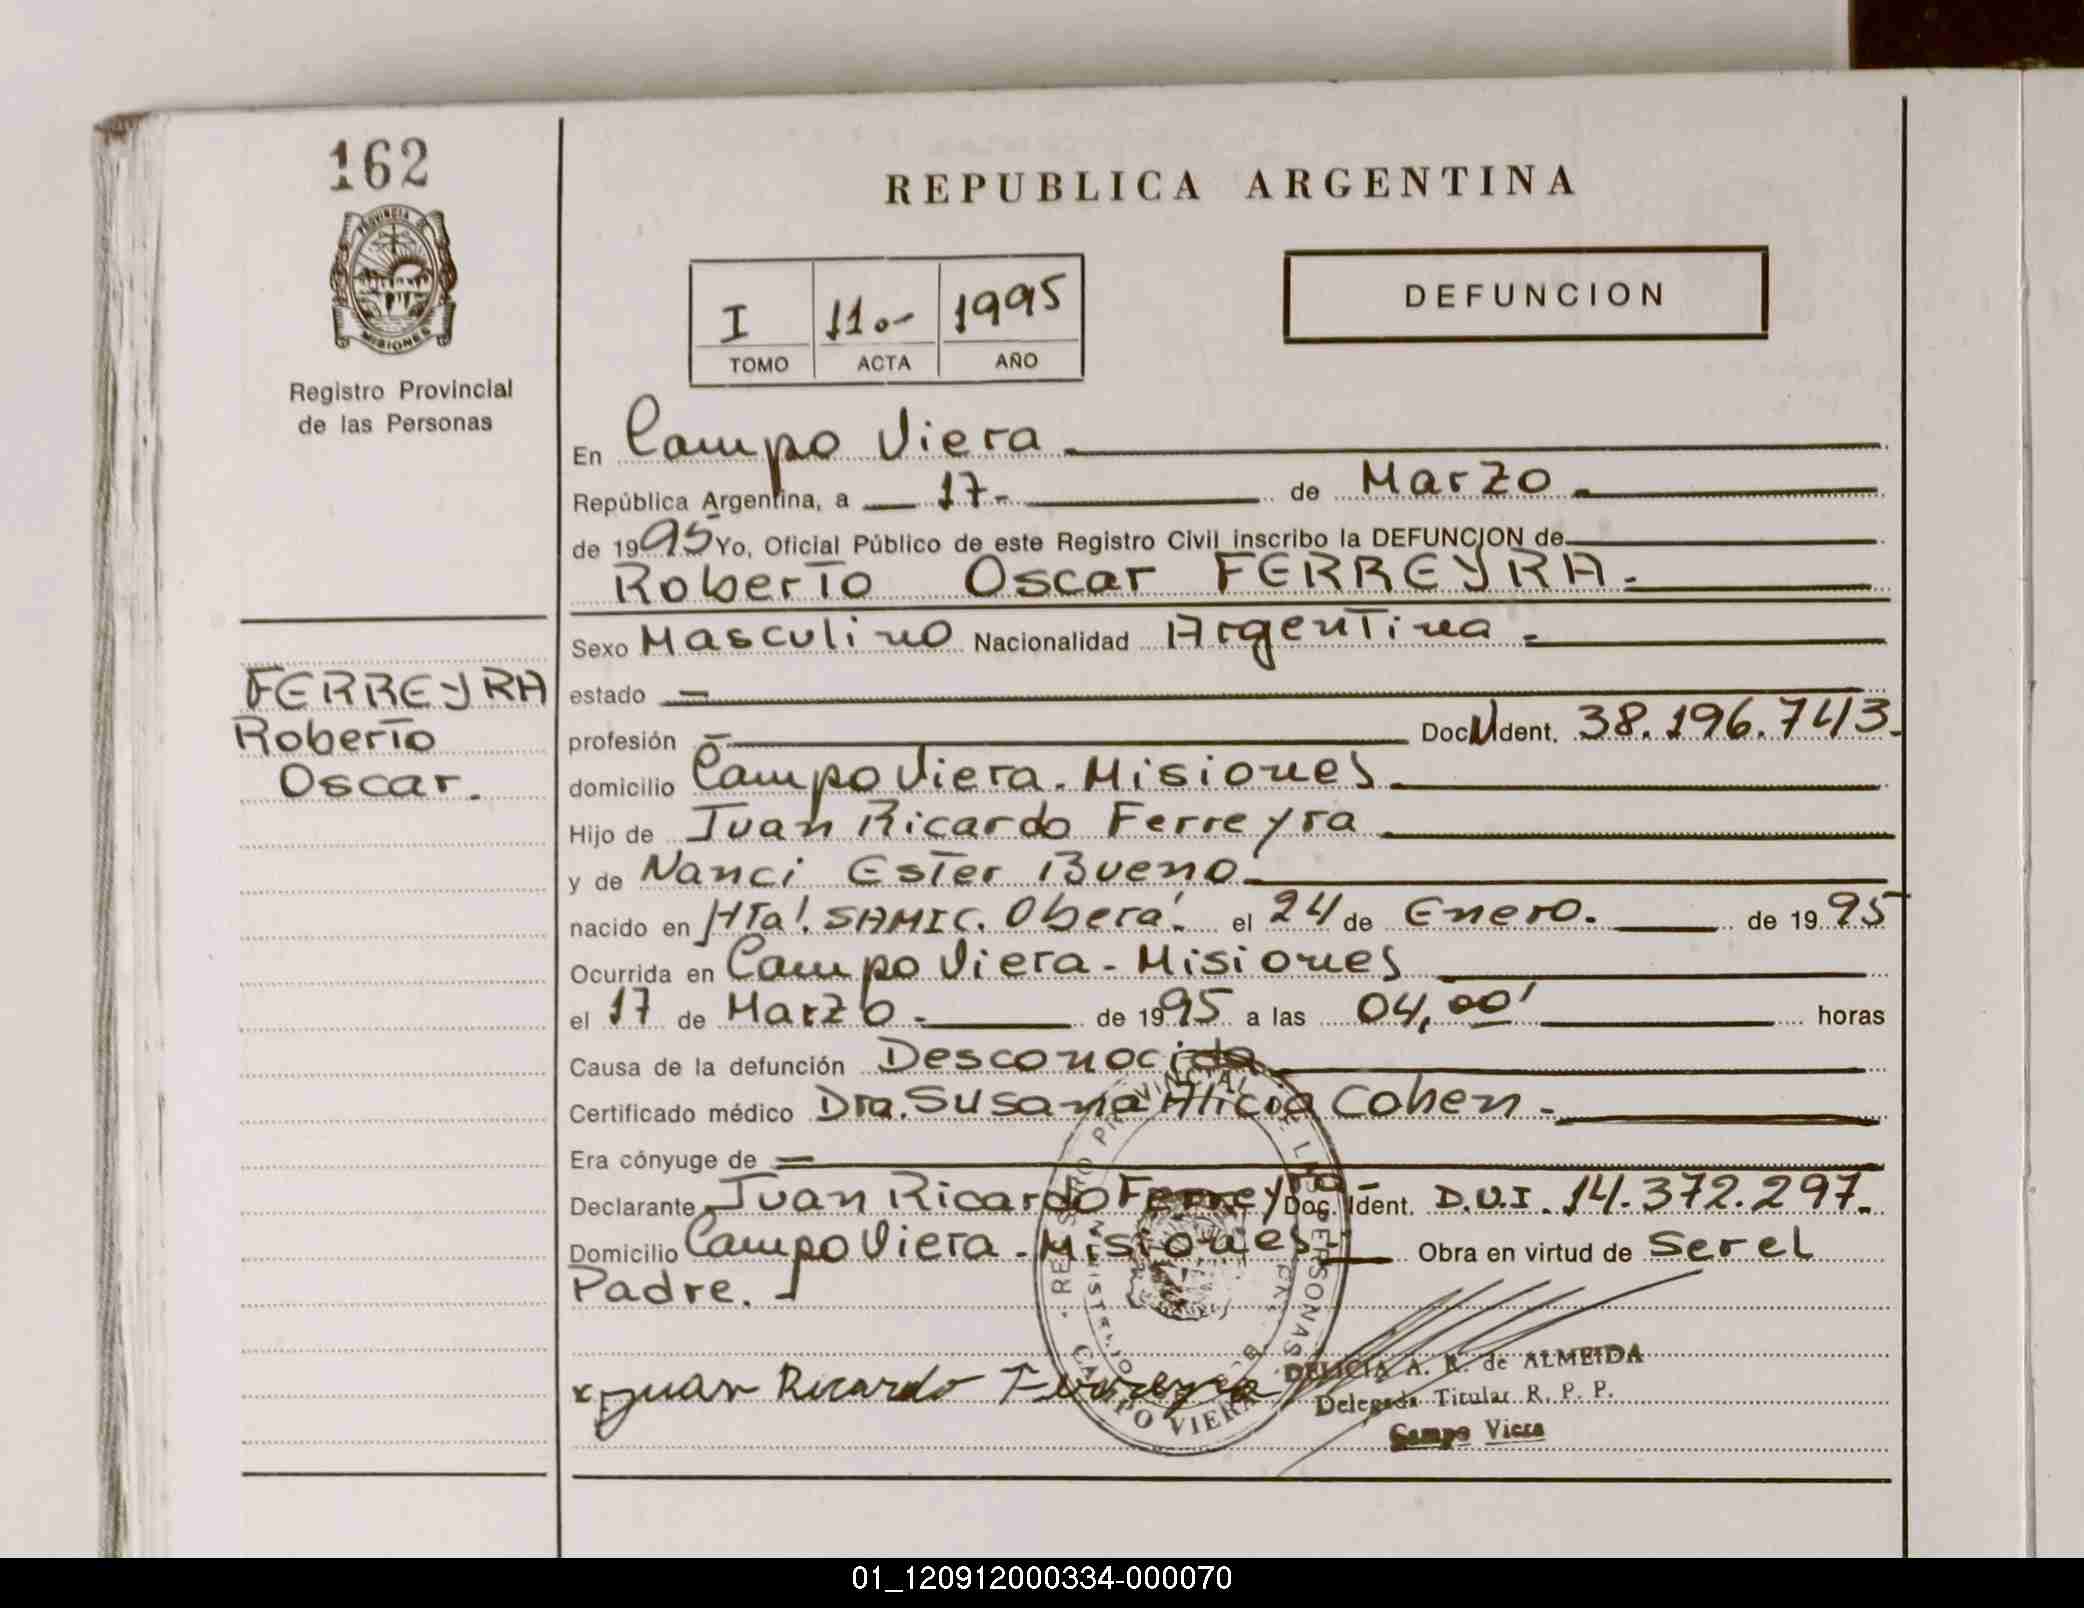 162
PROVINCIA DE
MISIONES
Registro Provincial
de las Personas
FERREYRA
Roberto
Oscar.
REPUBLICA ARGENTINA
I 11.- 1995
TOMO ACTA AÑO
DEFUNCION
En Campo Viera
República Argentina, a 17- de Marzo
de 1995 Yo, Oficial Público de este Registro Civil inscribo la DEFUNCION de
Roberto Oscar FERREYRA.
Sexo Masculino Nacionalidad Argentina
estado
profesión Doc. Ident. 38.196.743.
domicilio Campo Viera. Misiones
Hijo de Juan Ricardo Ferreyra
y de Nanci Ester Bueno
nacido en Htal. SAMIC. Oberá. el 24 de Enero. de 1995
Ocurrida en Campo Viera - Misiones
el 17 de Marzo. de 1995 a las 04,00' horas
Causa de la defunción Desconocida
Certificado médico Dra. Susana Alicia Cohen.
Era cónyuge de
Declarante Juan Ricardo Ferreyra Doc. Ident. D.U.I. 14.372.297.
Domicilio Campo Viera - Misiones Obra en virtud de Ser el
Padre.
x Juan Ricardo Ferreyra
DELICIA A. R. de ALMEIDA
Delegada Titular R. P. P.
Campo Viera
REGISTRO PROVINCIAL DE LAS PERSONAS
CAMPO VIERA
01_120912000334-000070